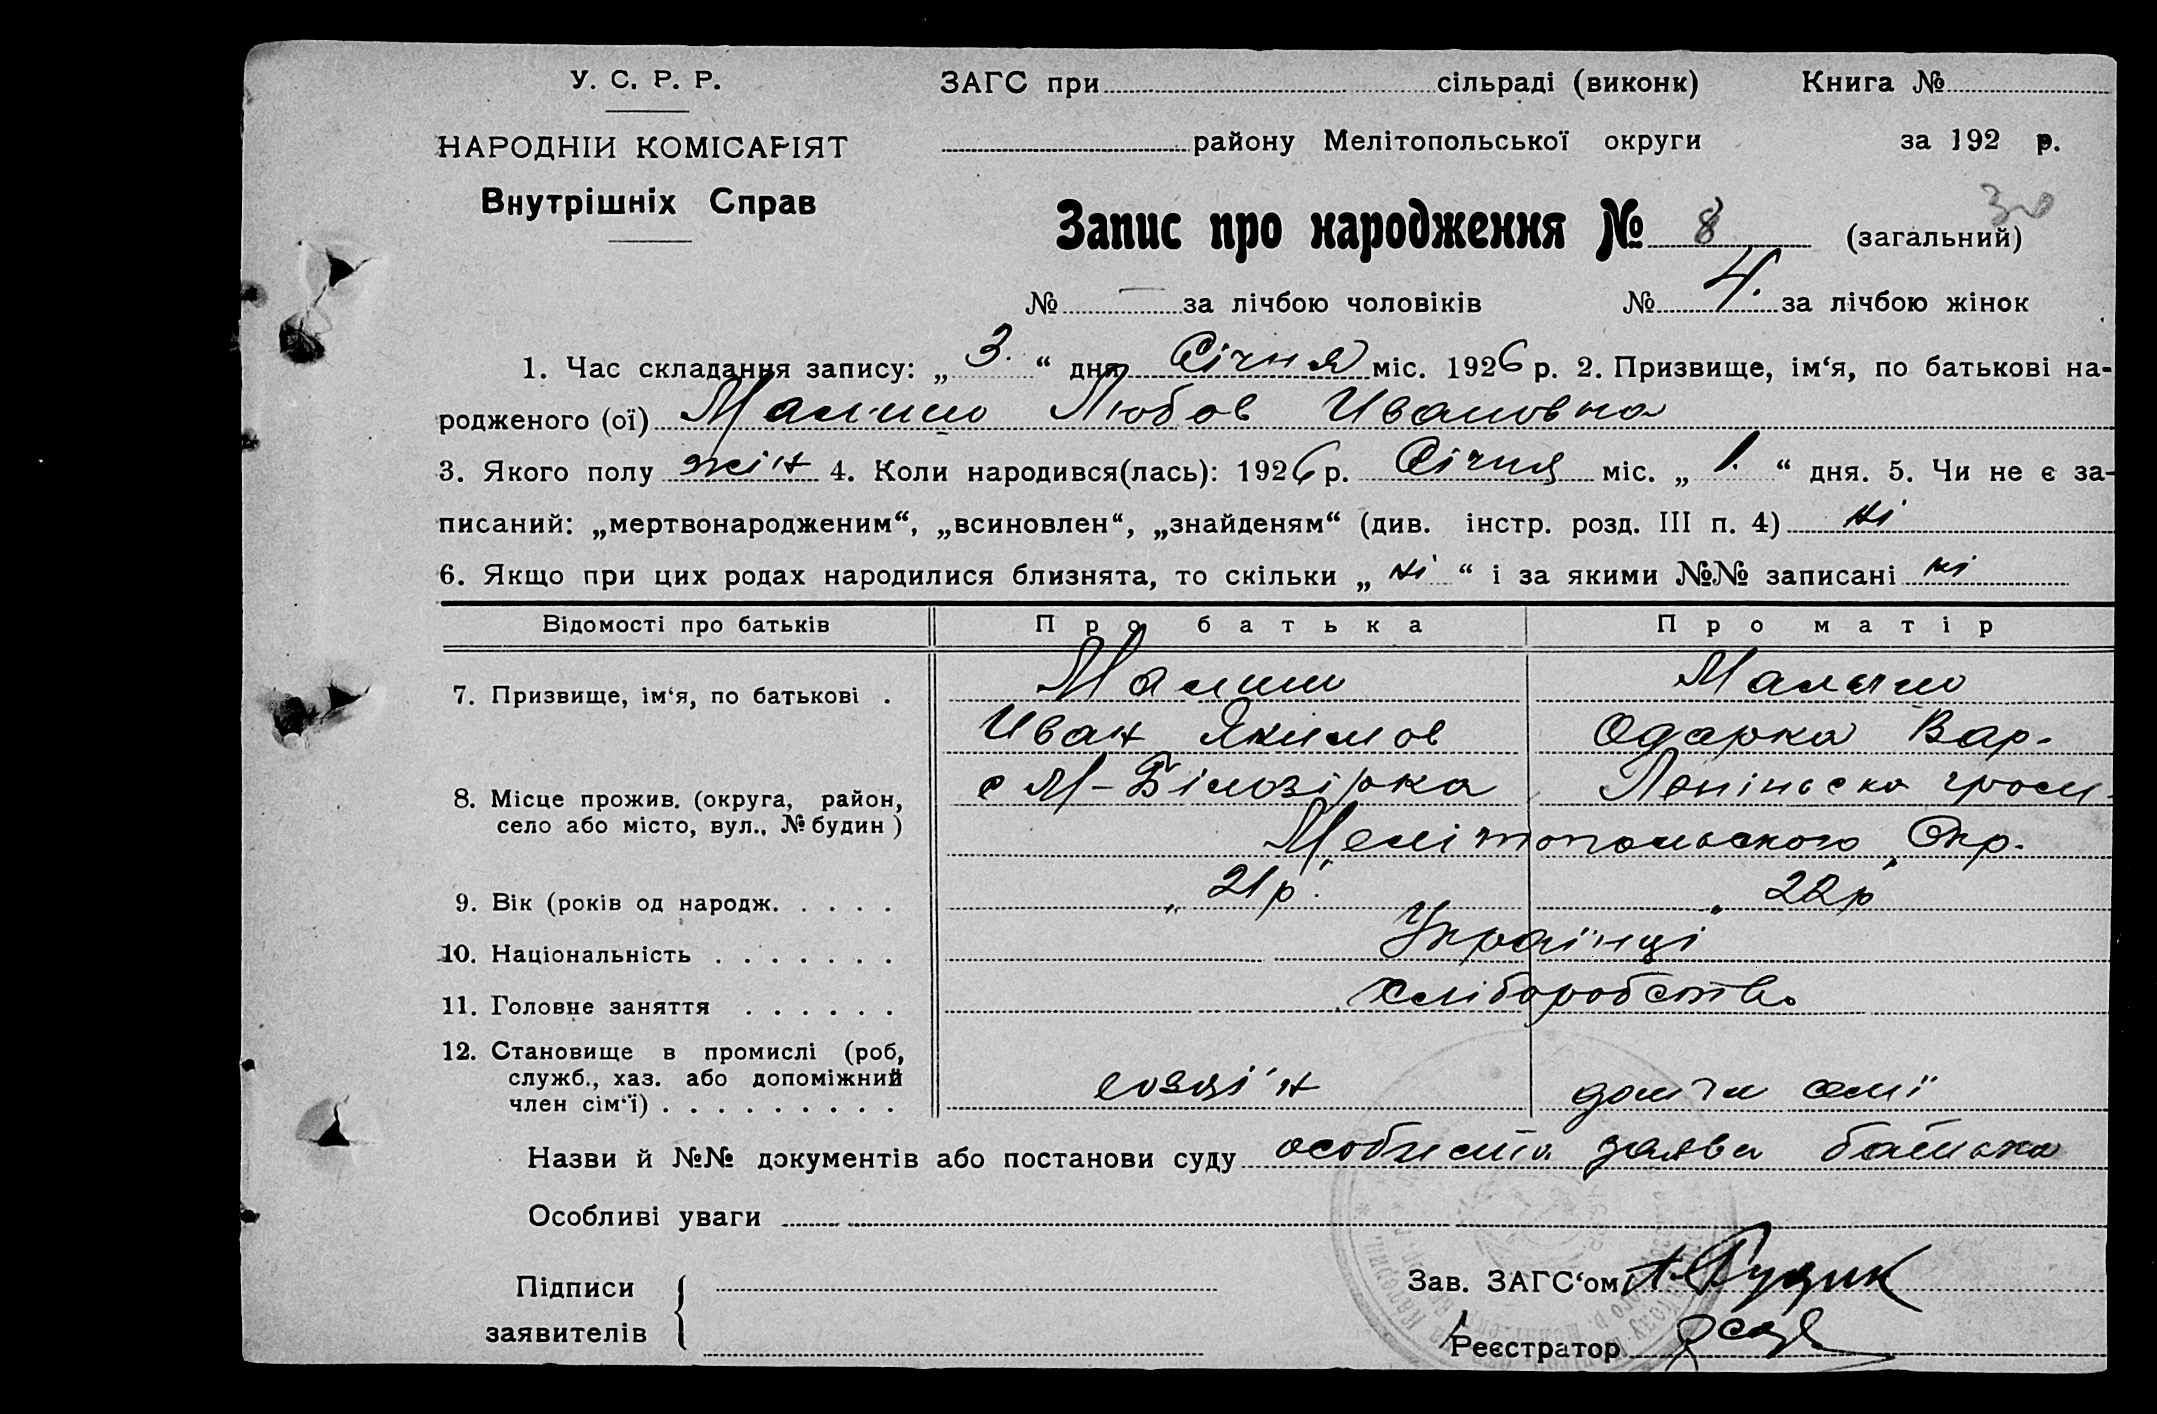 У. С. Р. Р.
ЗАГС при сільраді (виконк) Книга №
НАРОДНІЙ КОМІСАРІЯТ
району Мелітопольської округи за 192 р.
Внутрішніх Справ
30
Запис про народження № 8 (загальний)
№ — за лічбою чоловіків № 4. за лічбою жінок
1. Час складання запису: „ 3. “ дня Січня міс. 1926 р. 2. Призвище, ім‘я, по батькові на-
родженого (ої) Любов Ивановна
3. Якого полу жін 4. Коли народився(лась): 1926 р. Січня міс. „ 1. “ дня. 5. Чи не є за-
писаний: „мертвонародженим“, „всиновлен“, „знайденям“ (див. інстр. розд. III п. 4) ні
6. Якщо при цих родах народилися близнята, то скільки „ ні “ і за якими №№ записані ні
Відомості про батьків Про батька Про матір
7. Призвище, ім‘я, по батькові .
Иван Якимов Одарка Вар.
8. Місце прожив. (округа, район, с М-Білозірка
село або місто, вул., № будин)
Мелітопольского Окр.
9. Вік (років од народж. . . . . „ 21 р. „ 22 р
10. Національність . . . . . . . Українці
11. Головне заняття . . . . . . хліборобство
12. Становище в промислі (роб,
служб., хаз. або допоміжний
член сім‘ї) . . . . . . . . . семї
Назви й №№ документів або постанови суду особиста заява батька
Особливі уваги
Підписи
заявителів
Зав. ЗАГС‘ом
Реєстратор